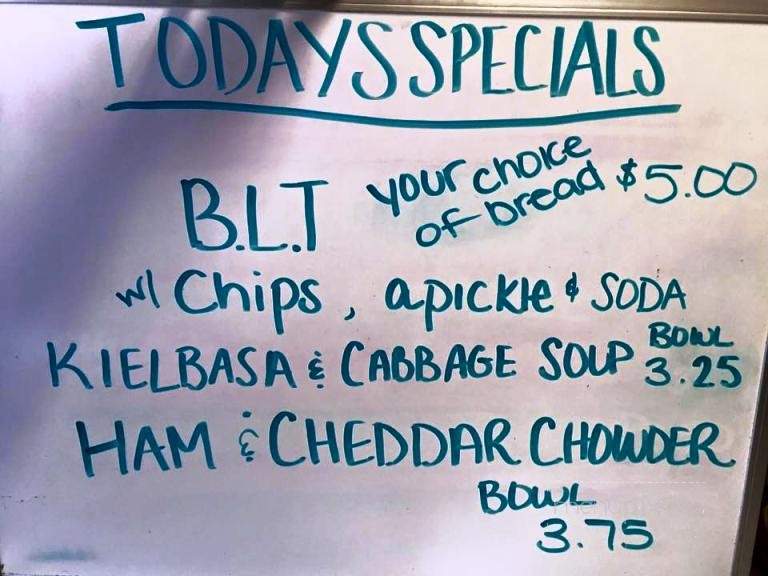 TODAYS SPECIALS
B.L.T your choice of bread $5.00
w/ Chips, a pickle & SODA
KIELBASA & CABBAGE SOUP BOWL 3.25
HAM & CHEDDAR CHOWDER
BOWL
3.75